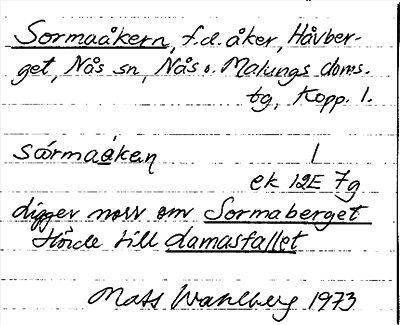 Sormaåkern, f.d. åker, Håvber-
get, Nås sn, Nås o. Malungs doms.
tg, Kopp. l.
sórmaàkeɳ 1
ek 12E 7g
ligger norr om Sormaberget
Hörde till damasfallet
Mats Wahlberg 1973